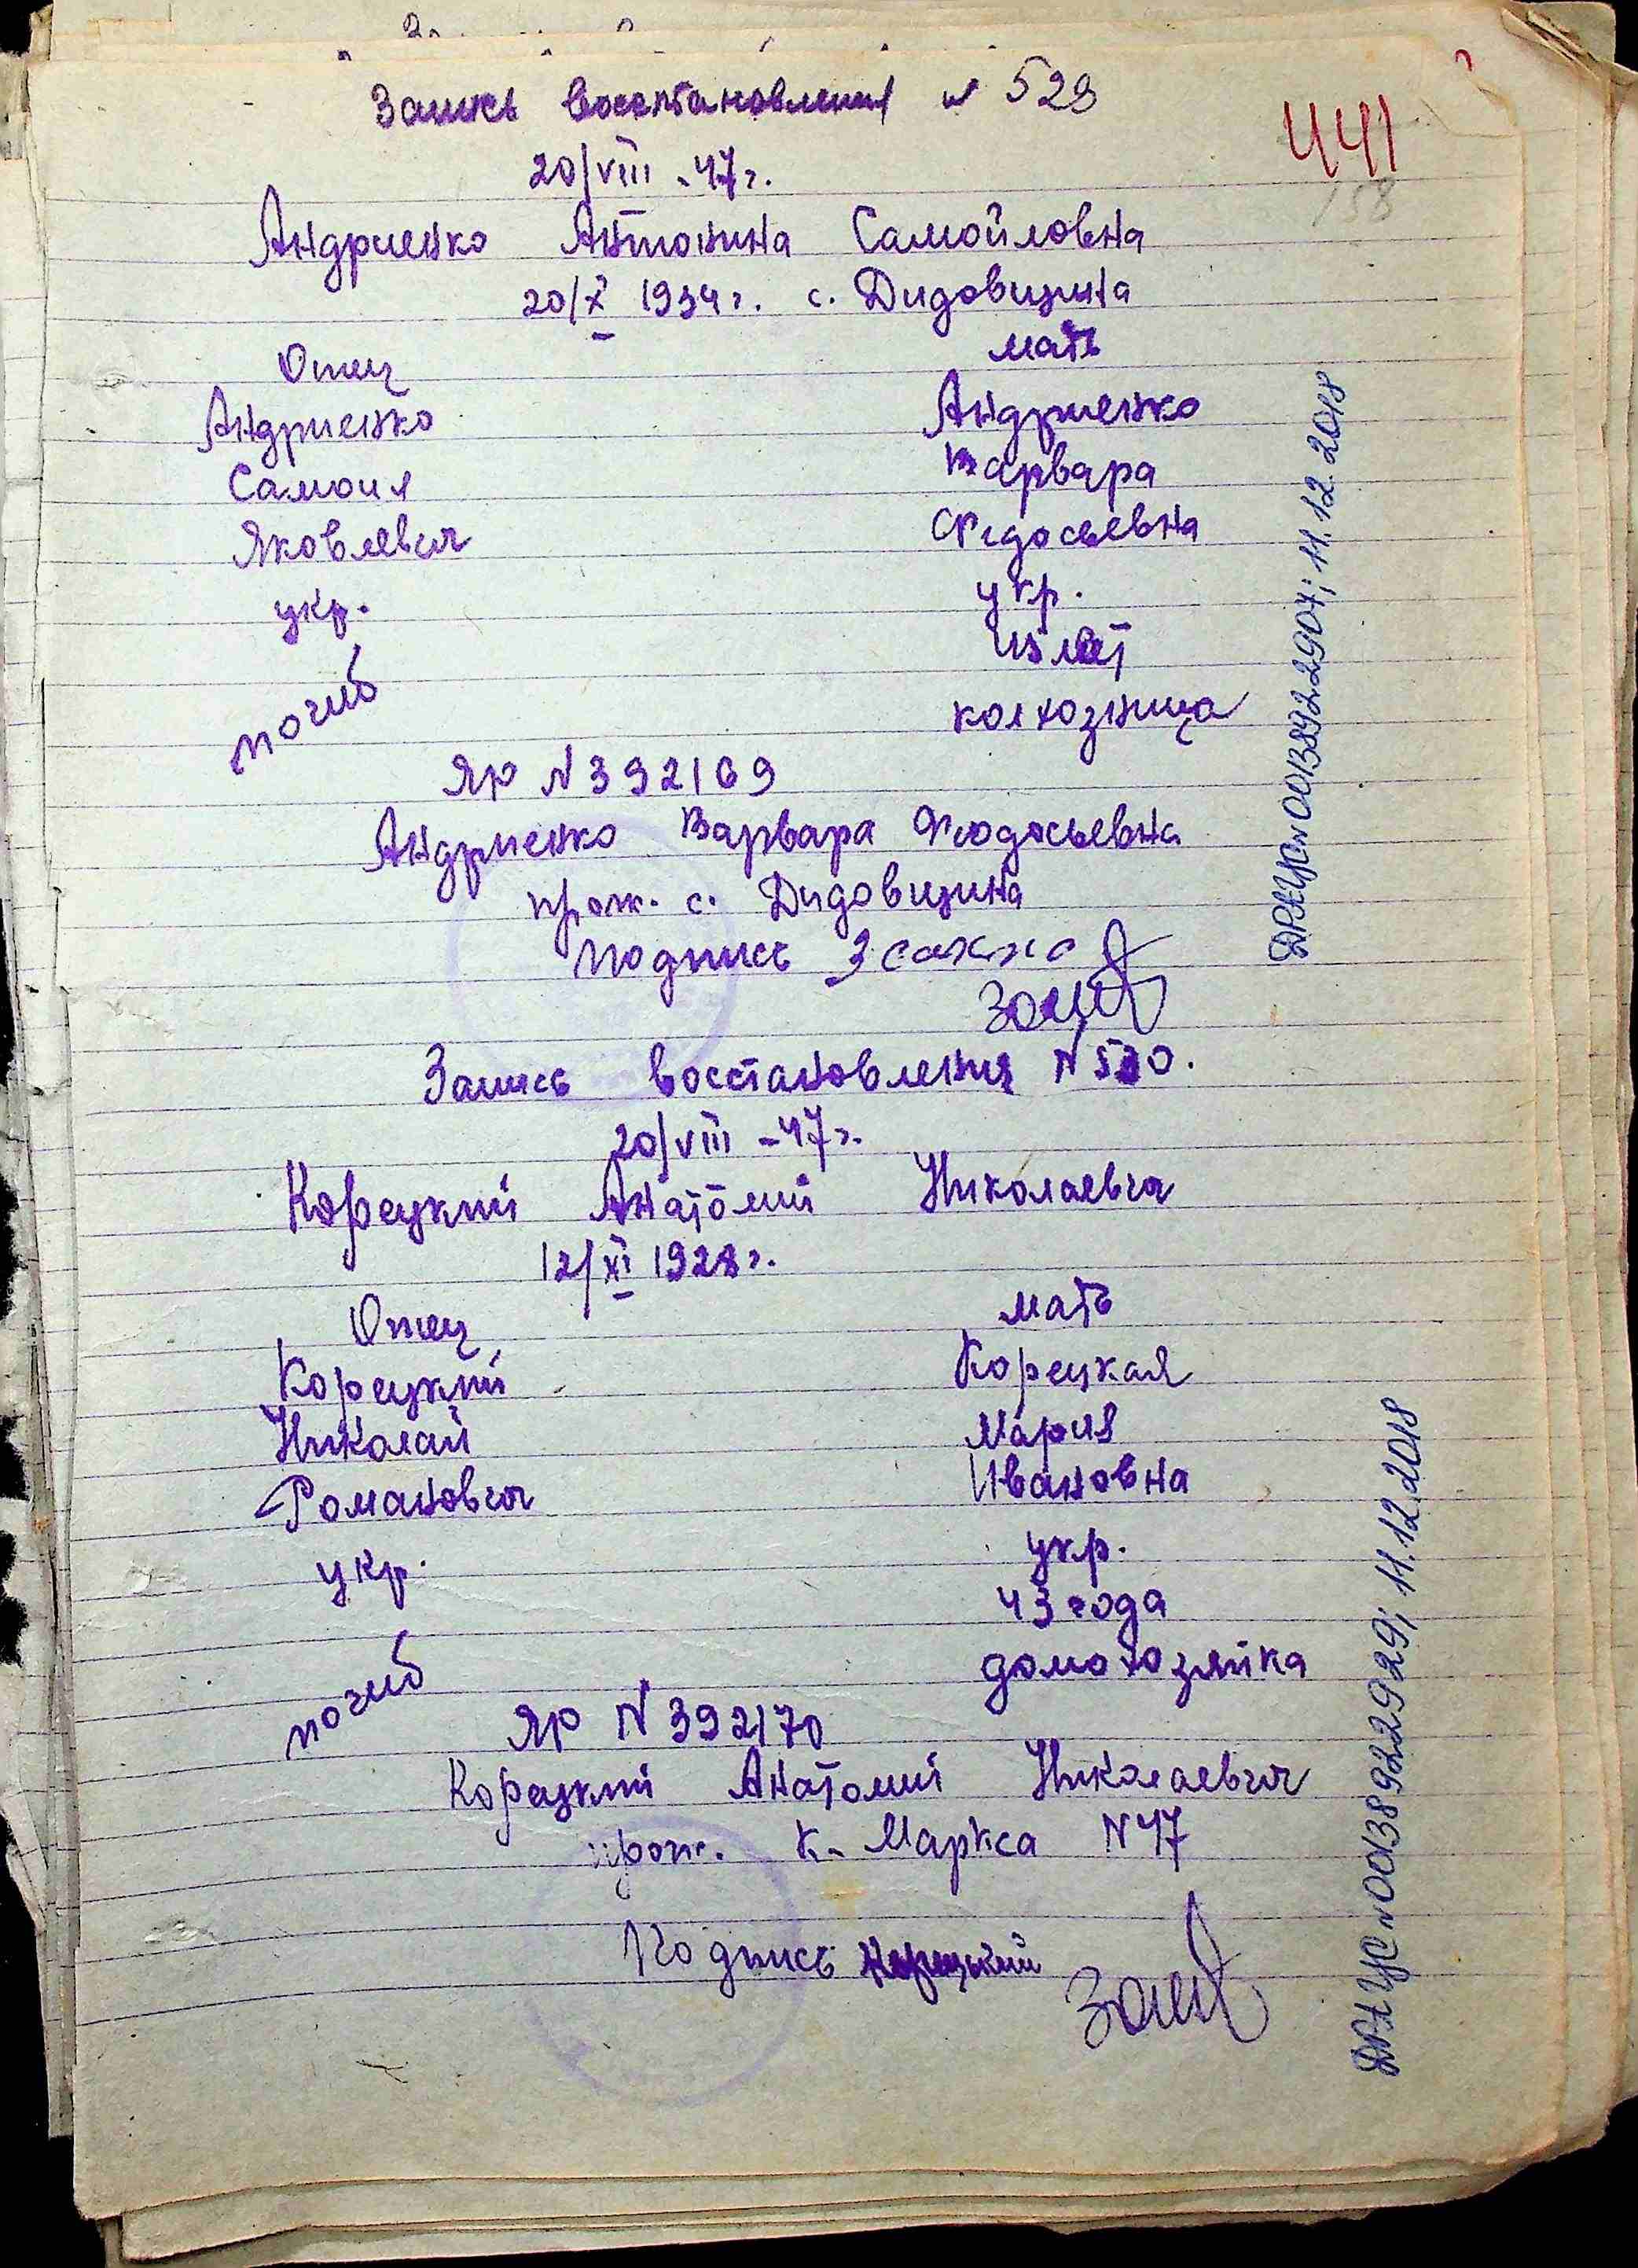 Запись восстановления № 529
441
158
20/VIII - 47 г.
Андриенко Антонина Самойловна
20/X 1934 г. с. Дидовщина
Отец мать
Андриенко Андриенко
Самоил Варвара
Яковлевич Федосьевна
укр. укр.
лет
погиб колхозница
ЯР N 392169
Андриенко Варвара Феодосьевна
прож. с. Дидовщина
подпись
Запись восстановления N 530.
20/VIII - 47 г.
Корецкий Анатолий Николаевич
12/XI 1928 г.
Отец мать
Корецкий Корецкая
Николай Мария
Романович Ивановна
укр. укр.
43 года
погиб домохозяйка
ЯР N 392170
Корецкий Анатолий Николаевич
прож. К. Маркса N 47
Подпись Корецький
ДРАЦС № 00138922907; 11.12.2018
ДРАЦС № 00138922929; 11.12.2018